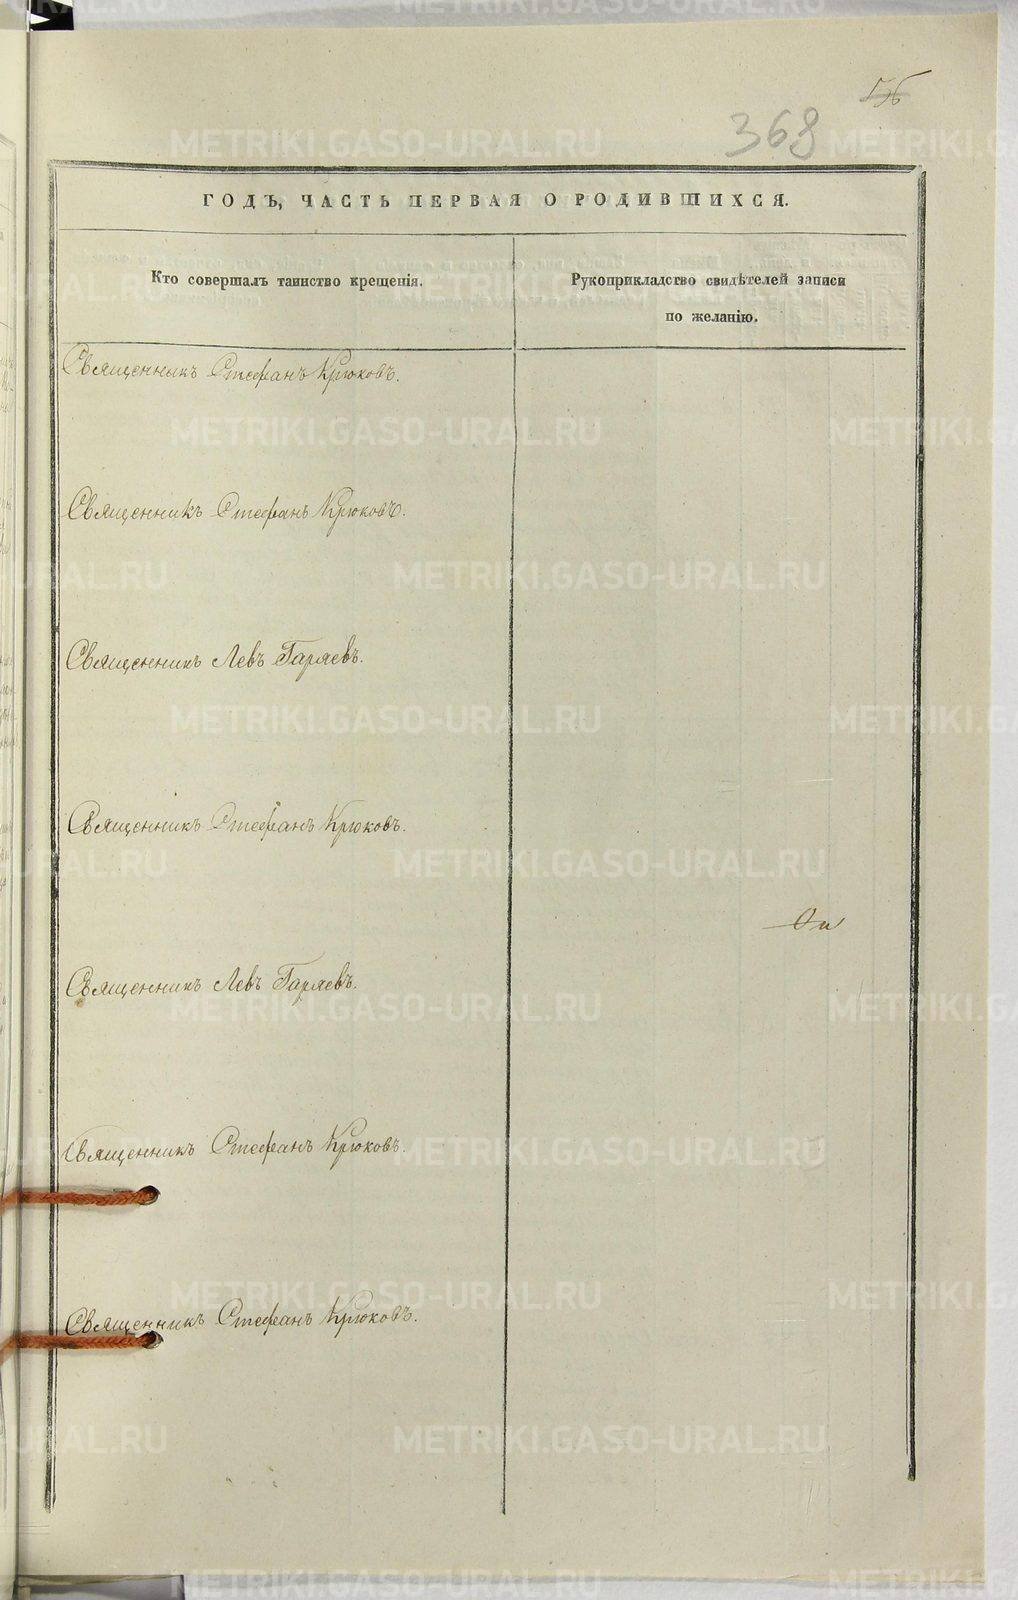 368
ГОДЪ, ЧАСТЬ ПЕРВАЯ О РОДИВШИХСЯ.
Кто совершалъ таинство крещенія.
Рукоприкладство свидѣтелей записи
по желанію.
Священникъ Стефанъ Крюковъ.
Священникъ Стефанъ Крюковъ.
Священникъ Левъ Гаряевъ.
Священникъ Стефанъ Крюковъ.
Священникъ Левъ Гаряевъ.
Священникъ Стефанъ Крюковъ.
Священникъ Стефанъ Крюковъ.
METRIKI.GASO-URAL.RU